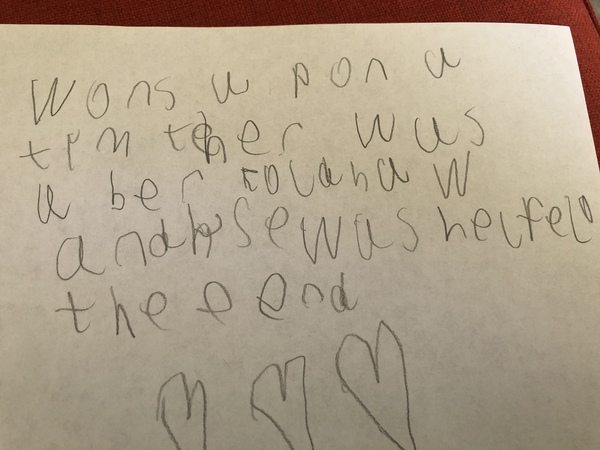 Wons u pon a
tim ther was
a ber
andh se was helfelo
the e end